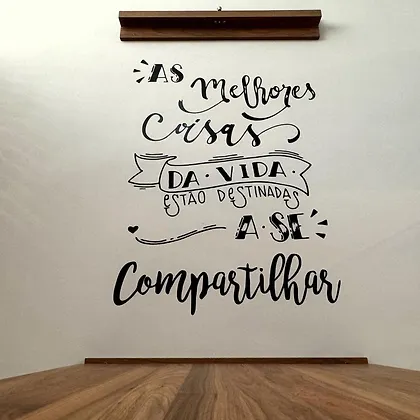 AS
Melhores
Coisas
DA · VIDA ·
ESTÃO DESTINADAS
A · SE
Compartilhar